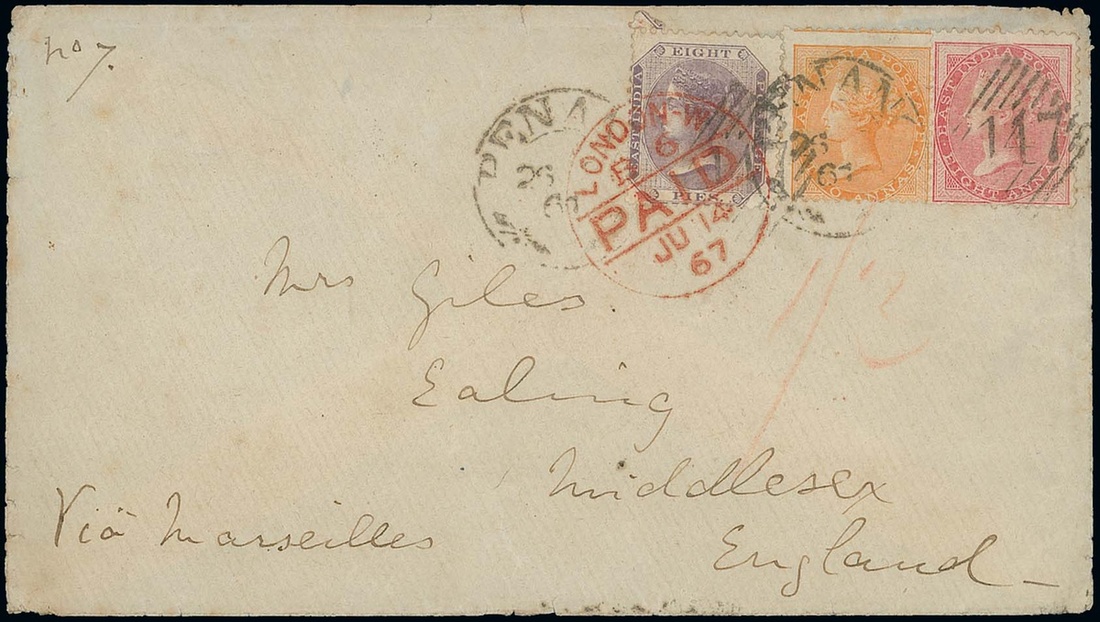 No 7.
EIGHT
EAST INDIA
PIES
EAST INDIA POSTAGE
EIGHT ANNAS
147
PENANG
26
LONDON N.W
6
PAID
JU 14
67
PENANG
26
67
1/2
Mrs Giles
Ealing
Middlesex
England
Viâ Marseilles